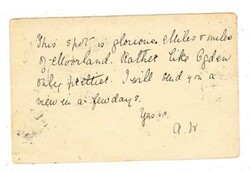 This spot is glorious. Miles & miles
of Moorland. Rather like Ogden
only prettier. I will send you a
view in a few days.
Yrs,
A.W